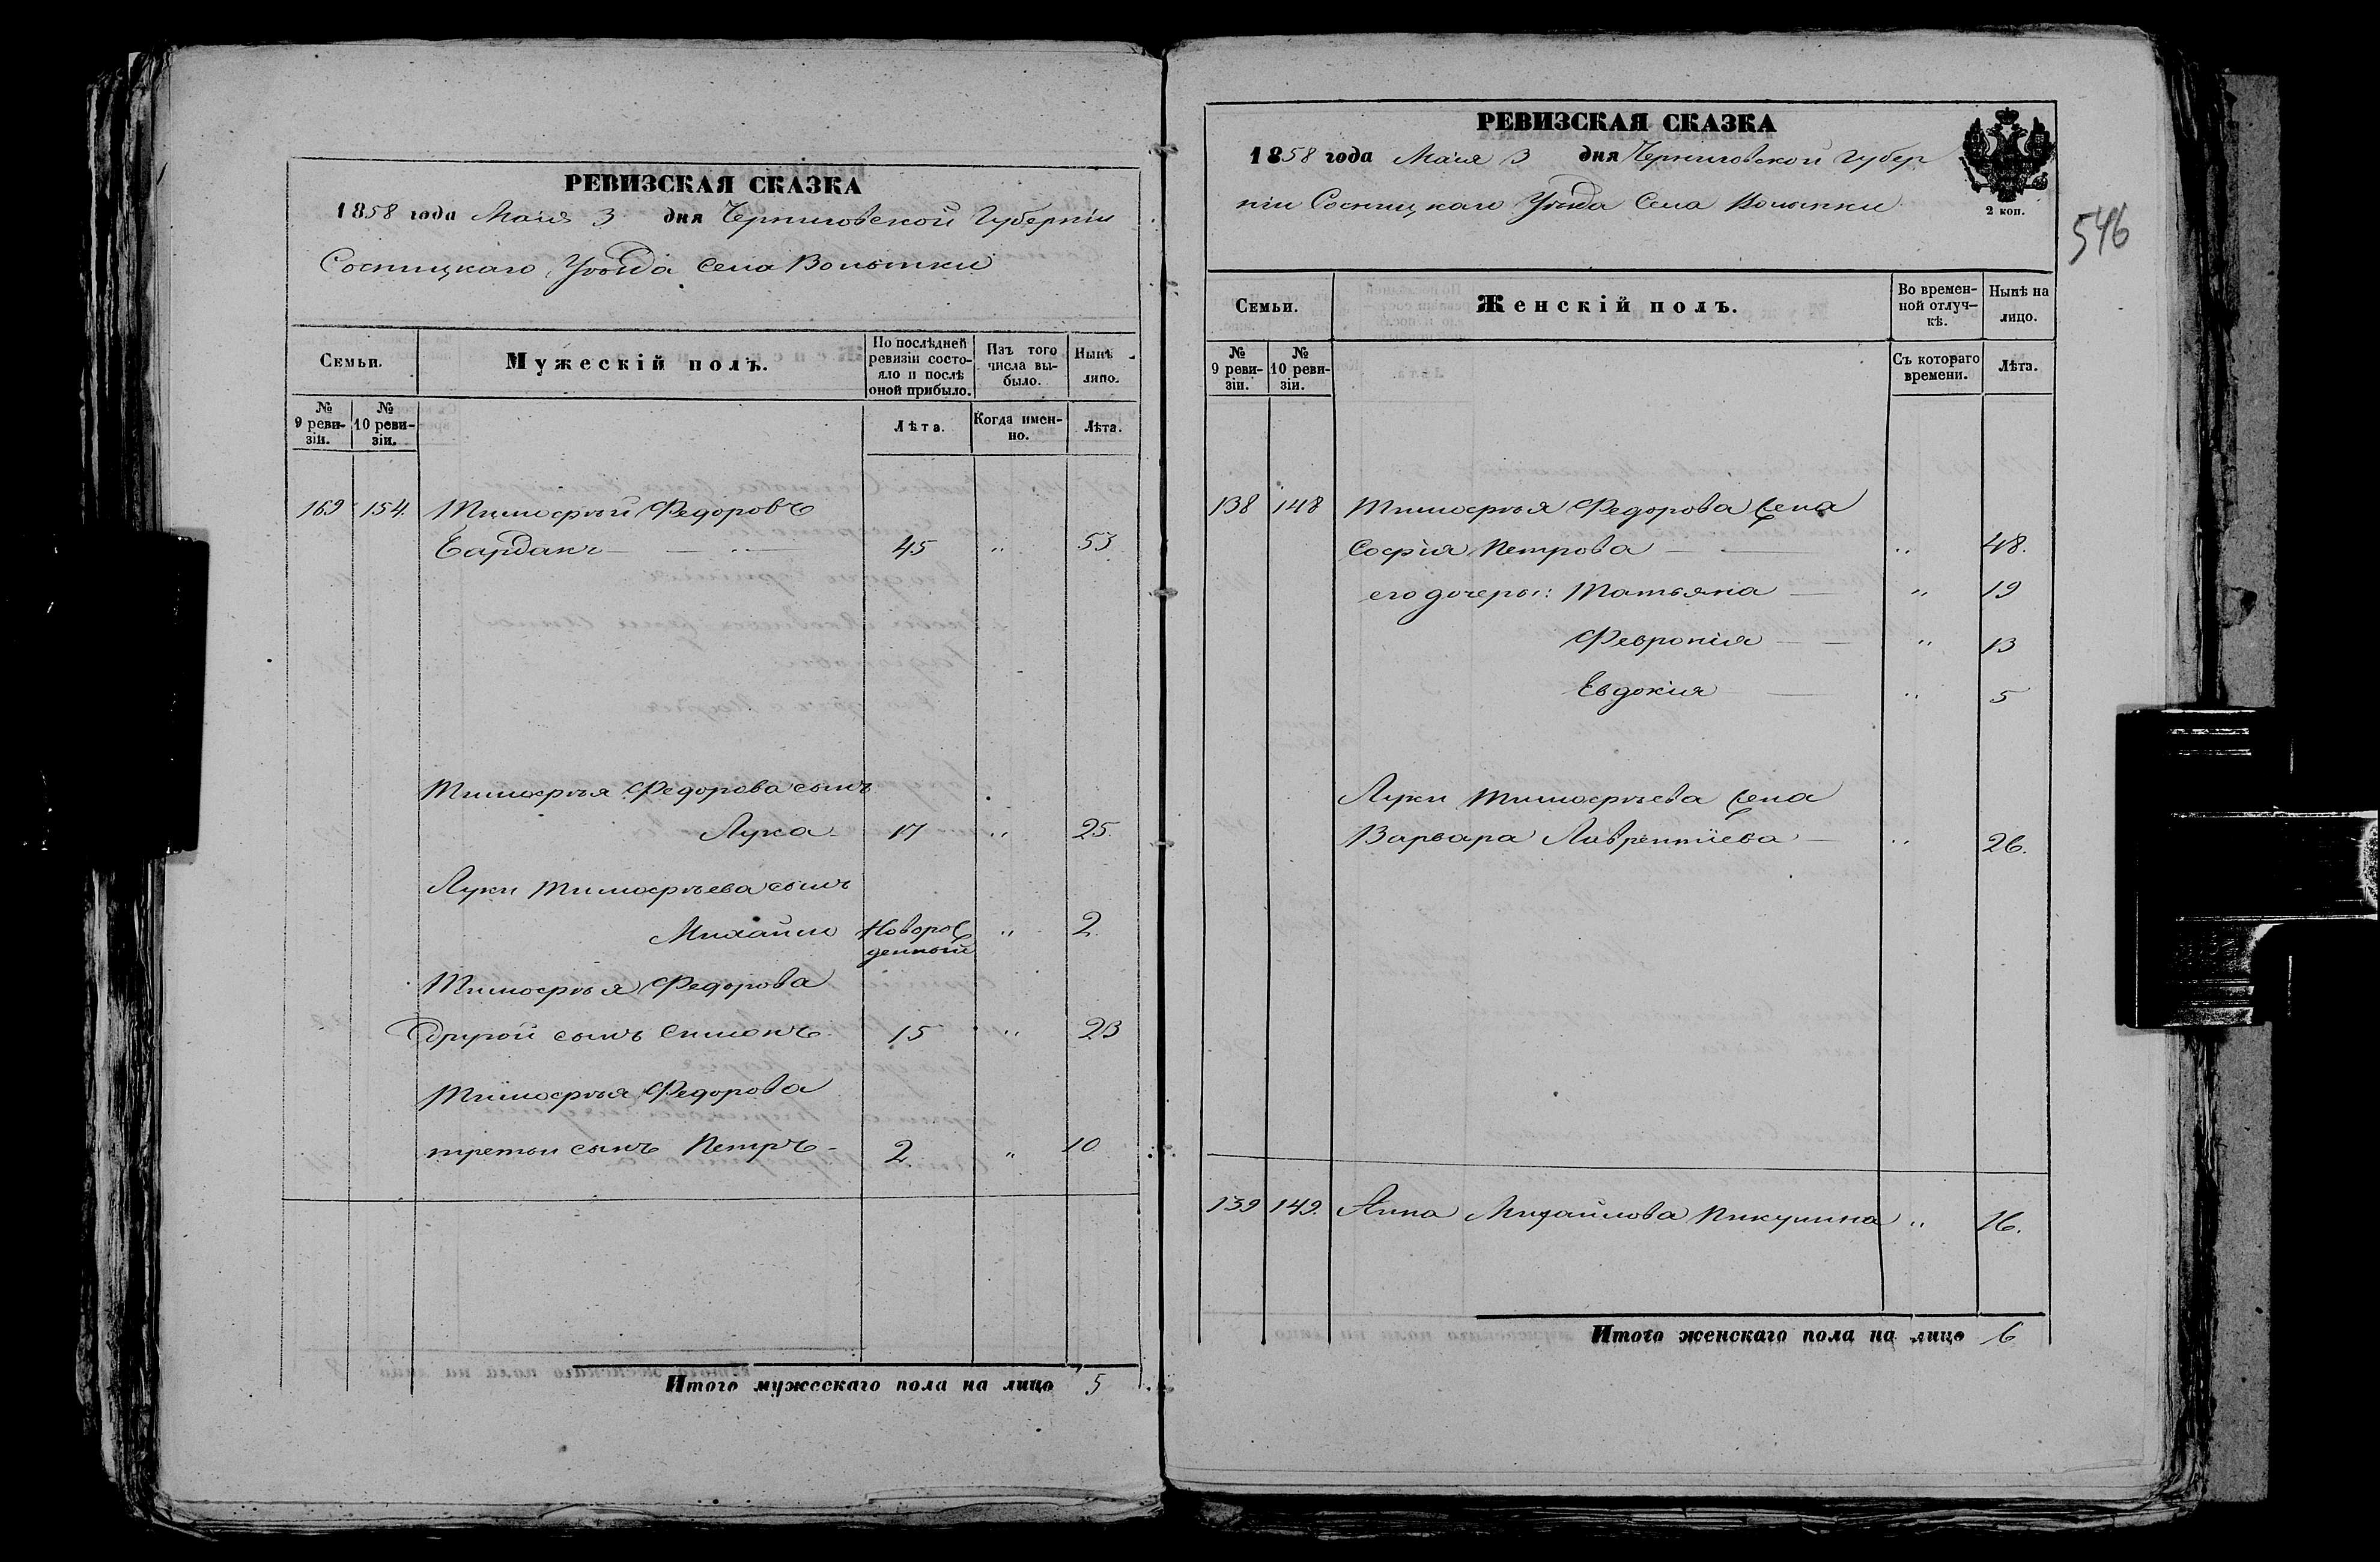 РЕВИЗСКАЯ СКАЗКА
1858 года Маія 3 дня Черниговской Губерніи
Сосницкаго Уѣзда Села Волынки
Семьи.
Мужескій полъ.
По послѣдней ревизіи состо-
яло и послѣ оной прибыло.
Изъ того числа вы-
было.
Нынѣ лицо.
№ 9 реви-
зіи.
№ 10 реви-
зіи.
Лѣта.
Когда имен-
но.
Лѣта.
169 154. Тимофѣй Федоровъ
45 " 53
Тимофѣя Федорова сынъ
Лука 17 " 25.
Луки Тимофѣева сынъ
Михайло Новорож
денный " 2.
Тимофѣя Федорова
другой сынъ Симонъ 15 " 23
Тимофѣя Федорова
третьи сынъ Петръ 2 " 10
Итого мужескаго пола на лицо 5
РЕВИЗСКАЯ СКАЗКА
1858 года Маія 3 дня Черниговской Губер
ніи Сосницкаго Уѣзда Села Волынки
2 коп.
546
Семьи.
Женскій полъ.
Во времен-
ной отлуч-
кѣ.
Нынѣ на лицо.
№ 9 реви-
зіи.
№ 10 реви-
зіи.
Съ котораго времени.
Лѣта.
138 148 Тимофѣя Федорова жена
Софія Петрова " 48.
его дочеры: Татьяна " 19
Февронія " 13
Евдокія " 5
Луки Тимофѣева жена
Варвара Лаврентіева " 26.
139 149. Анна Михайлова Пикулина " 16.
Итого женскаго пола на лицо 6